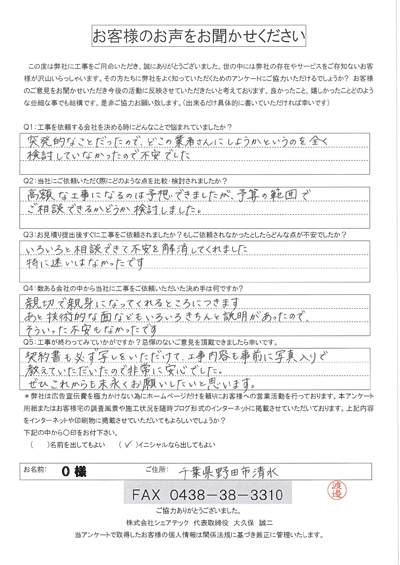 お客様のお声をお聞かせください
この度は弊社を工事をご用命いただき、誠にありがとうございました。世の中には弊社の存在やサービスをご存知ないお客
様が沢山いらっしゃいます。その方たちに弊社をよく知っていただくためのアンケートにご協力いただけるでしょうか? お客様
のご意見をお聞かせいただき今後の活動に反映させていただきたいと考えております。良かったこと、嬉しかったことどのよう
な些細な事でも結構です。是非ご協力お願い致します。(出来るだけ具体的に書いていただければ幸いです)
Q1:工事を依頼する会社を決める時にどんなことで悩まれていましたか?
突発的なことだったので、どこの業者さんにしようかというのを全く
検討していなかったので不安でした
Q2:当社にご依頼いただく際にどのような点を比較・検討されましたか?
高額な工事になるのは予想できましたが、予算の範囲で
ご相談できるかどうか検討しました。
Q3:お見積り提出後すぐに工事をご依頼されましたか?もしご依頼されなかったとしたらどんな点が不安でしたか?
いろいろと相談できて不安を解消してくれました
特に迷いはなかったです
Q4:数ある会社の中から当社に工事をご依頼いただいた決め手は何ですか?
親切で親身になってくれるところにつきます
あと技術的な面などもいろいろきちんと説明があったので、
そういった不安もなかったです
Q5:工事が終わってみていかがですか?忌憚のないご意見を頂戴できましたら幸いです。
契約書も必ず写しをいただけて、工事内容も事前に写真入りで
教えていただいたので非常に安心でした。
ぜひこれからも末永くお願いしたいと思います。
*弊社は広告宣伝費を極力かけない為にホームページだけを頼りにお客様への営業活動を行っております。本アンケート
用紙またはお客様宅の調査風景や施工状況を随時ブログ形式のインターネットに掲載させていただいております。上記内容
をインターネットや印刷物に掲載させていただいてもよろしいでしょうか?
下記の中から○印をお付下さい。
( )名前を出してもよい (✓)イニシャルなら出してもよい
お名前: O 様 ご住所: 千葉県野田市清水
FAX 0438-38-3310
渡邉
ご協力ありがとうございました。
株式会社シェアテック 代表取締役 大久保 誠二
当アンケートで取得したお客様の個人情報は関係法規に基づき厳正に管理いたします。